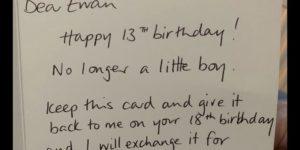 Dea Ewan
Happy 13TH birthday!
No longer a little boy.
Keep this card and give it
back to me on your 18th birthday
and I will exchange it for